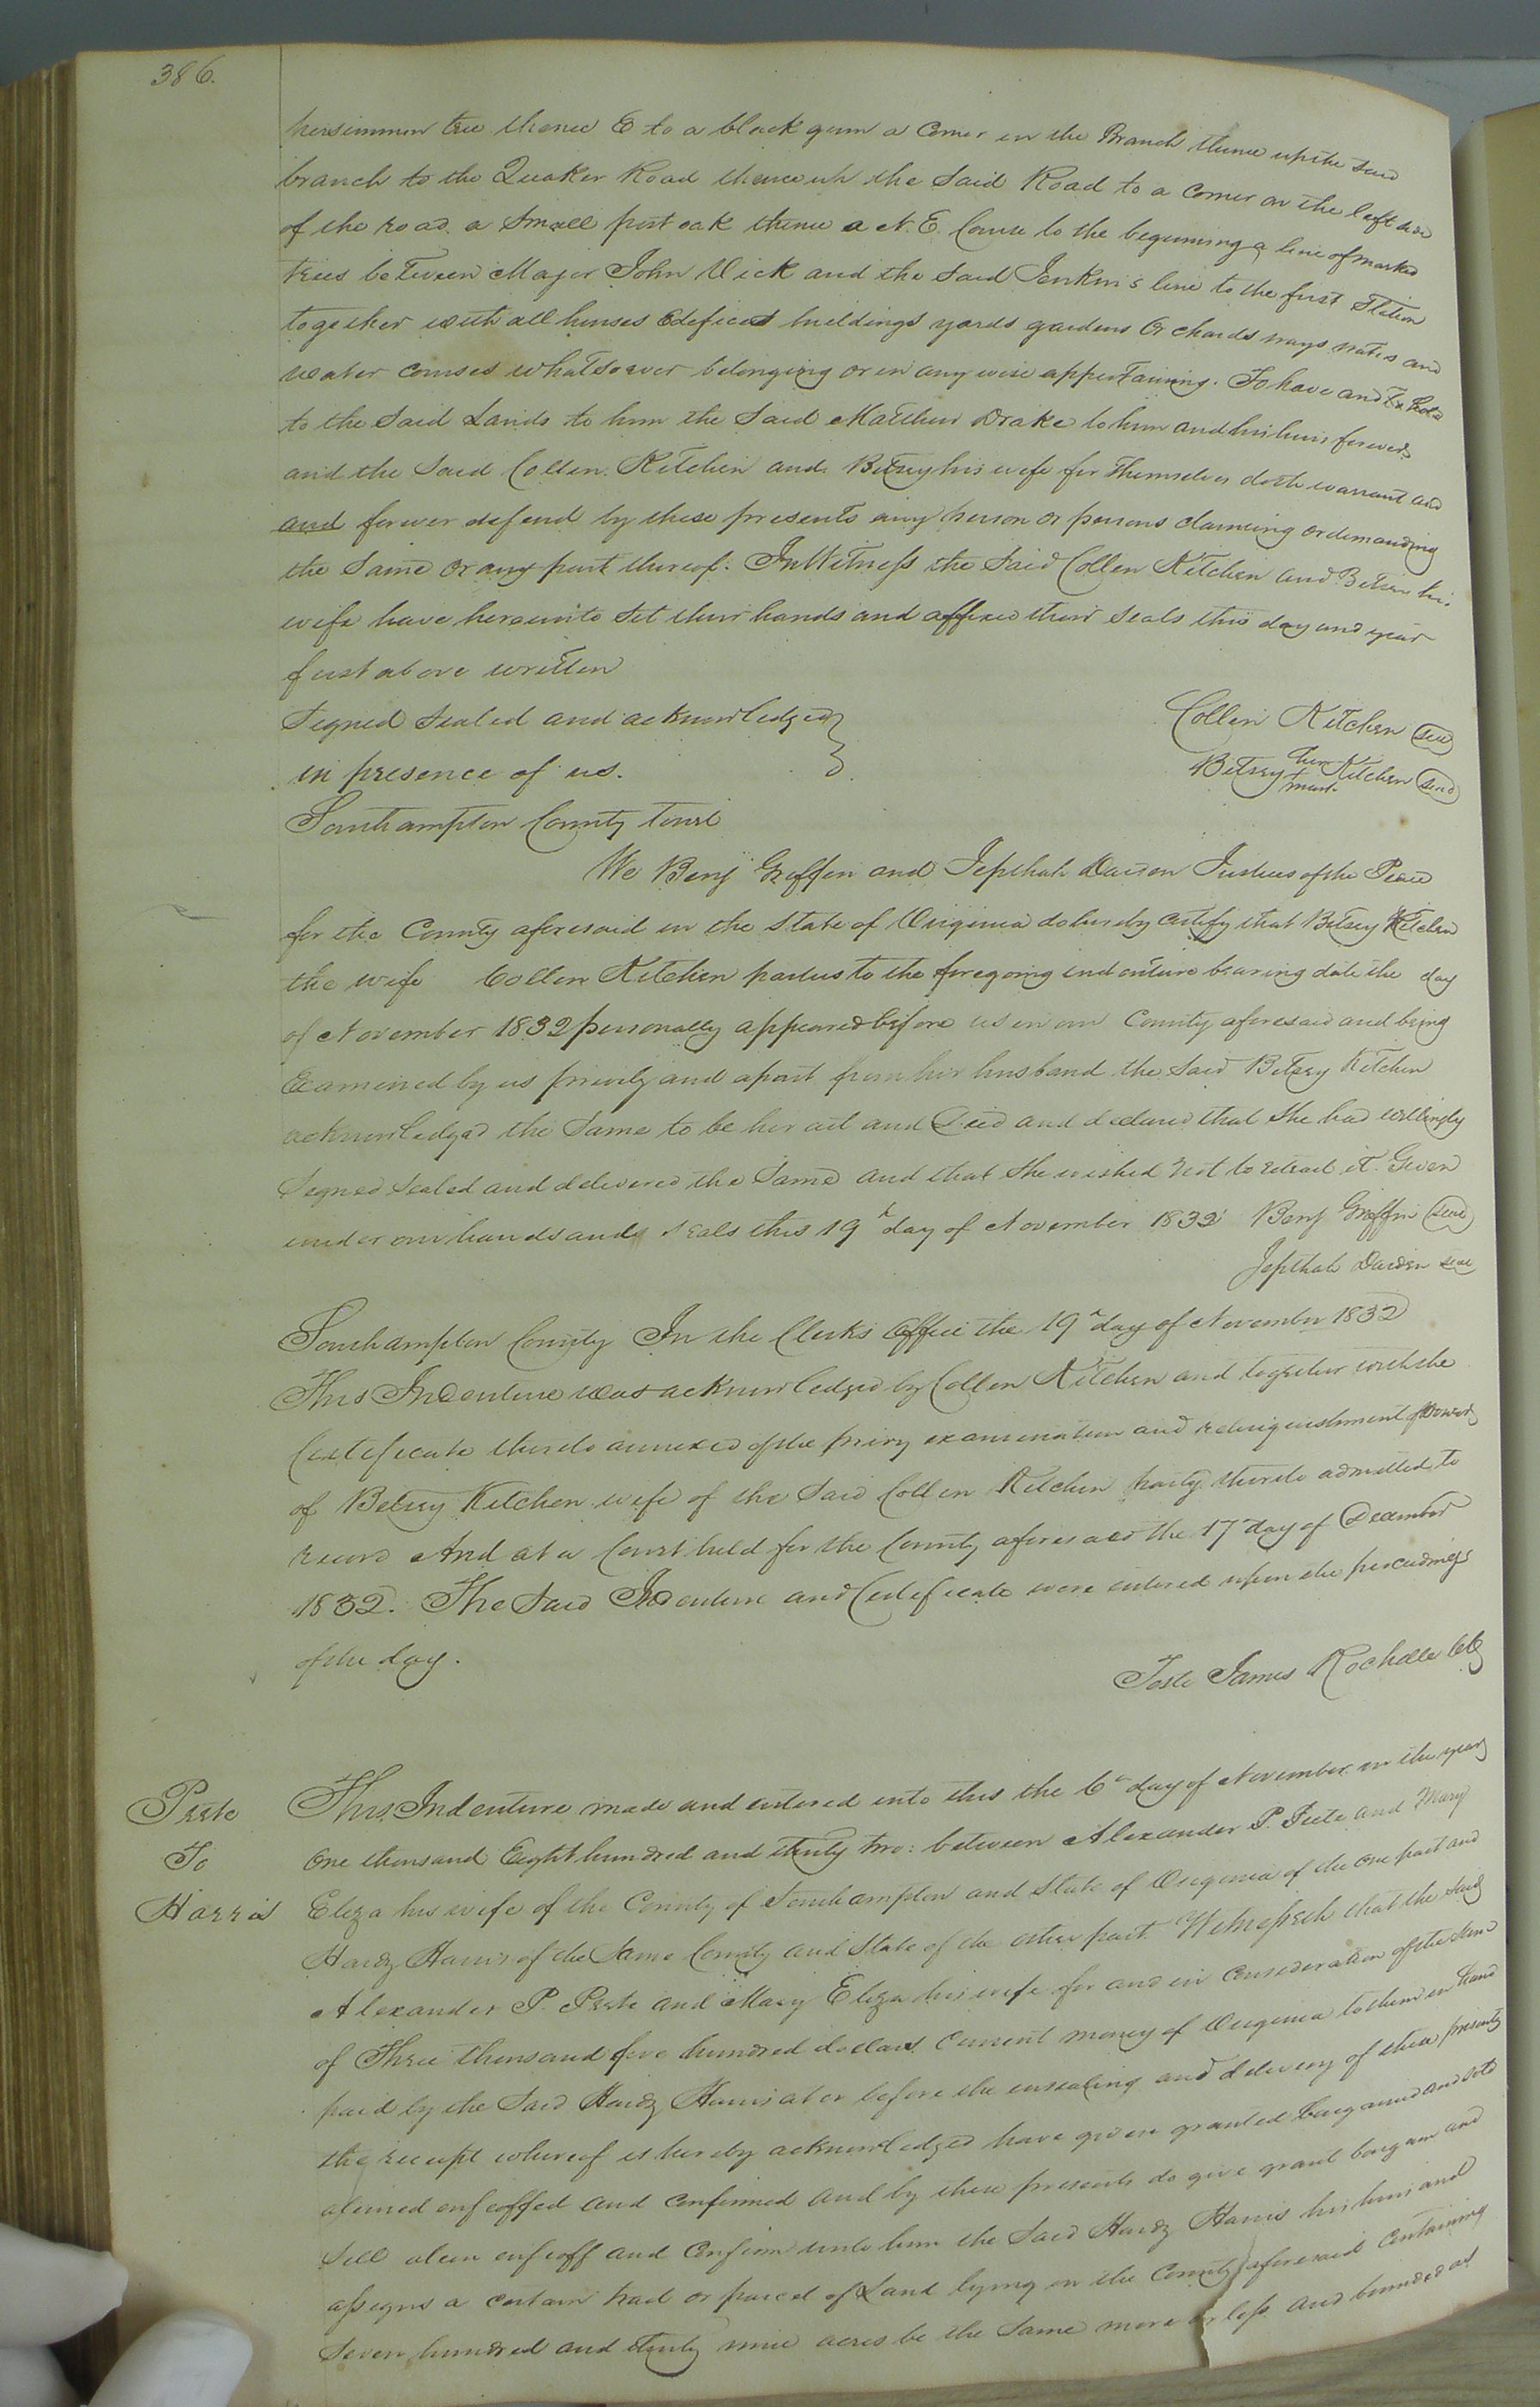 386.
persimmon tree thence E to a black gum a Corner in the Branch thence up the said
branch to the Quaker Road thence up the Said Road to a Corner on the left side
of the road a Small post oak thence a N. E. Course to the beginning a line of marked
trees between Major John Vick and the Said Jenkins line to the first Station
together with all houses Edifices buildings yards gardens Orchards ways waters and
water courses whatsoever belonging or in any wise appertaining. To have and To hold
to the Said Lands to him the Said Matthew Drake to him and his heirs forever
and the Said Collen Kitchen and Betsey his wife for themselves doth warrant and
and forever defend by these presents any person or persons claiming or demanding
the Same or any part thereof. In Witness the Said Collen Kitchen and Betsey his
wife have hereunto Set their hands and affixed their Seals this day and year
first above written
Signed Sealed and acknowledged
in presence of us.
Collen Kitchen Seal
Betsey her + mark Kitchen Seal
Southampton County Towit
We Benj Griffin and Jepthah Darden Justices of the Peace
for the County aforesaid in the State of Virginia do hereby certify that Betsey Kitchen
the wife Collen Kitchen parties to the foregoing indenture bearing date the day
of November 1832 personally appeared before us in our County aforesaid and being
Examined by us privily and apart from her husband the Said Betsey Kitchen
acknowledged the Same to be her act and Deed and declared that She had willingly
Signed Sealed and delivered the Same and that She wished not to retract it. Given
under our hands and seals this 19th day of November 1832 Benj Griffin Seal
Jepthah Darden Seal
Southampton County In the Clerks Office the 19th day of November 1832
This Indenture was acknowledged by Collen Kitchen and together with the
Certificate thereto annexed of the privy examination and relinquishment of Dower
of Betsey Kitchen wife of the Said Collen Kitchen party thereto admitted to
record And at a Court held for the County aforesaid the 17th day of December
1832. The Said Indenture and Certificate were entered upon the proceedings
of the day.
Teste James Rochelle Clk
Peete
To
Harris
This Indenture made and entered into this the 6th day of November in the year
One thousand Eight hundred and thirty two: between Alexander P. Peete and Mary
Eliza his wife of the County of Southampton and State of Virginia of the one part and
Hardy Harris of the Same County and State of the other part Witnesseth that the Said
Alexander P. Peete and Mary Eliza his wife for and in Consideration of the Sum
of Three thousand five hundred dollars Current money of Virginia to them in hand
paid by the Said Hardy Harris at or before the ensealing and delivery of these presents
the receipt whereof is hereby acknowledged have given granted bargained and sold
aliened enfeoffed and Confirmed and by these presents do give grant bargain and
Sell alien enfeoff and Confirm unto him the Said Hardy Harris his heirs and
assigns a certain tract or parcel of Land lying in the County aforesaid Containing
Seven hundred and thirty nine acres be the Same more or less and bounded as